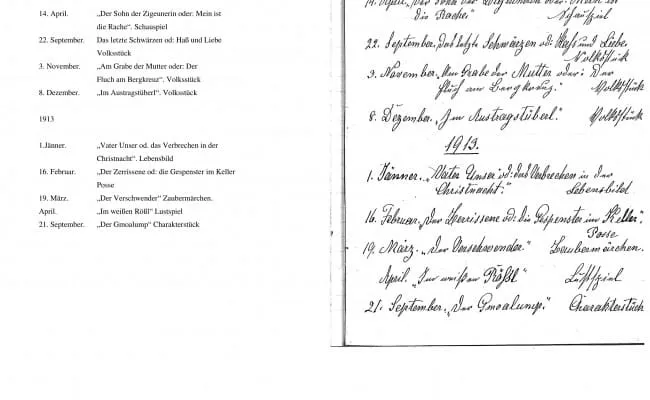 14. April. „Der Sohn der Zigeunerin oder: Mein ist
die Rache“. Schauspiel
22. September. Das letzte Schwärzen od: Haß und Liebe
Volksstück
3. November. „Am Grabe der Mutter oder: Der
Fluch am Bergkreuz“. Volksstück
8. Dezember. „Im Austragstüberl“. Volksstück
1913
1.Jänner. „Vater Unser od. das Verbrechen in der
Christnacht“. Lebensbild
16. Februar. „Der Zerrissene od: die Gespenster im Keller
Posse
19. März. „Der Verschwender“ Zaubermärchen.
April. „Im weißen Rößl“ Lustspiel
21. September. „Der Gmoalump“ Charakterstück
die Rache“. Schauspiel
22. September. Das letzte Schwärzen od: Haß und Liebe.
Volksstück
3. November. „Am Grabe der Mutter oder: Der
Fluch am Bergkreuz.“ Volksstück
8. Dezember. „Im Austragstüberl.“ Volksstück
1913.
1. Jänner. „Vater Unser od: das Verbrechen in der
Christnacht.“ Lebensbild
16. Februar. „Der Zerrissene od: die Gespenster im Keller“.
Posse
19. März. „Der Verschwender.“ Zaubermärchen.
April. „Im weißen Rößl“ Lustspiel
21. September. „Der Gmoalump.“ Charakterstück